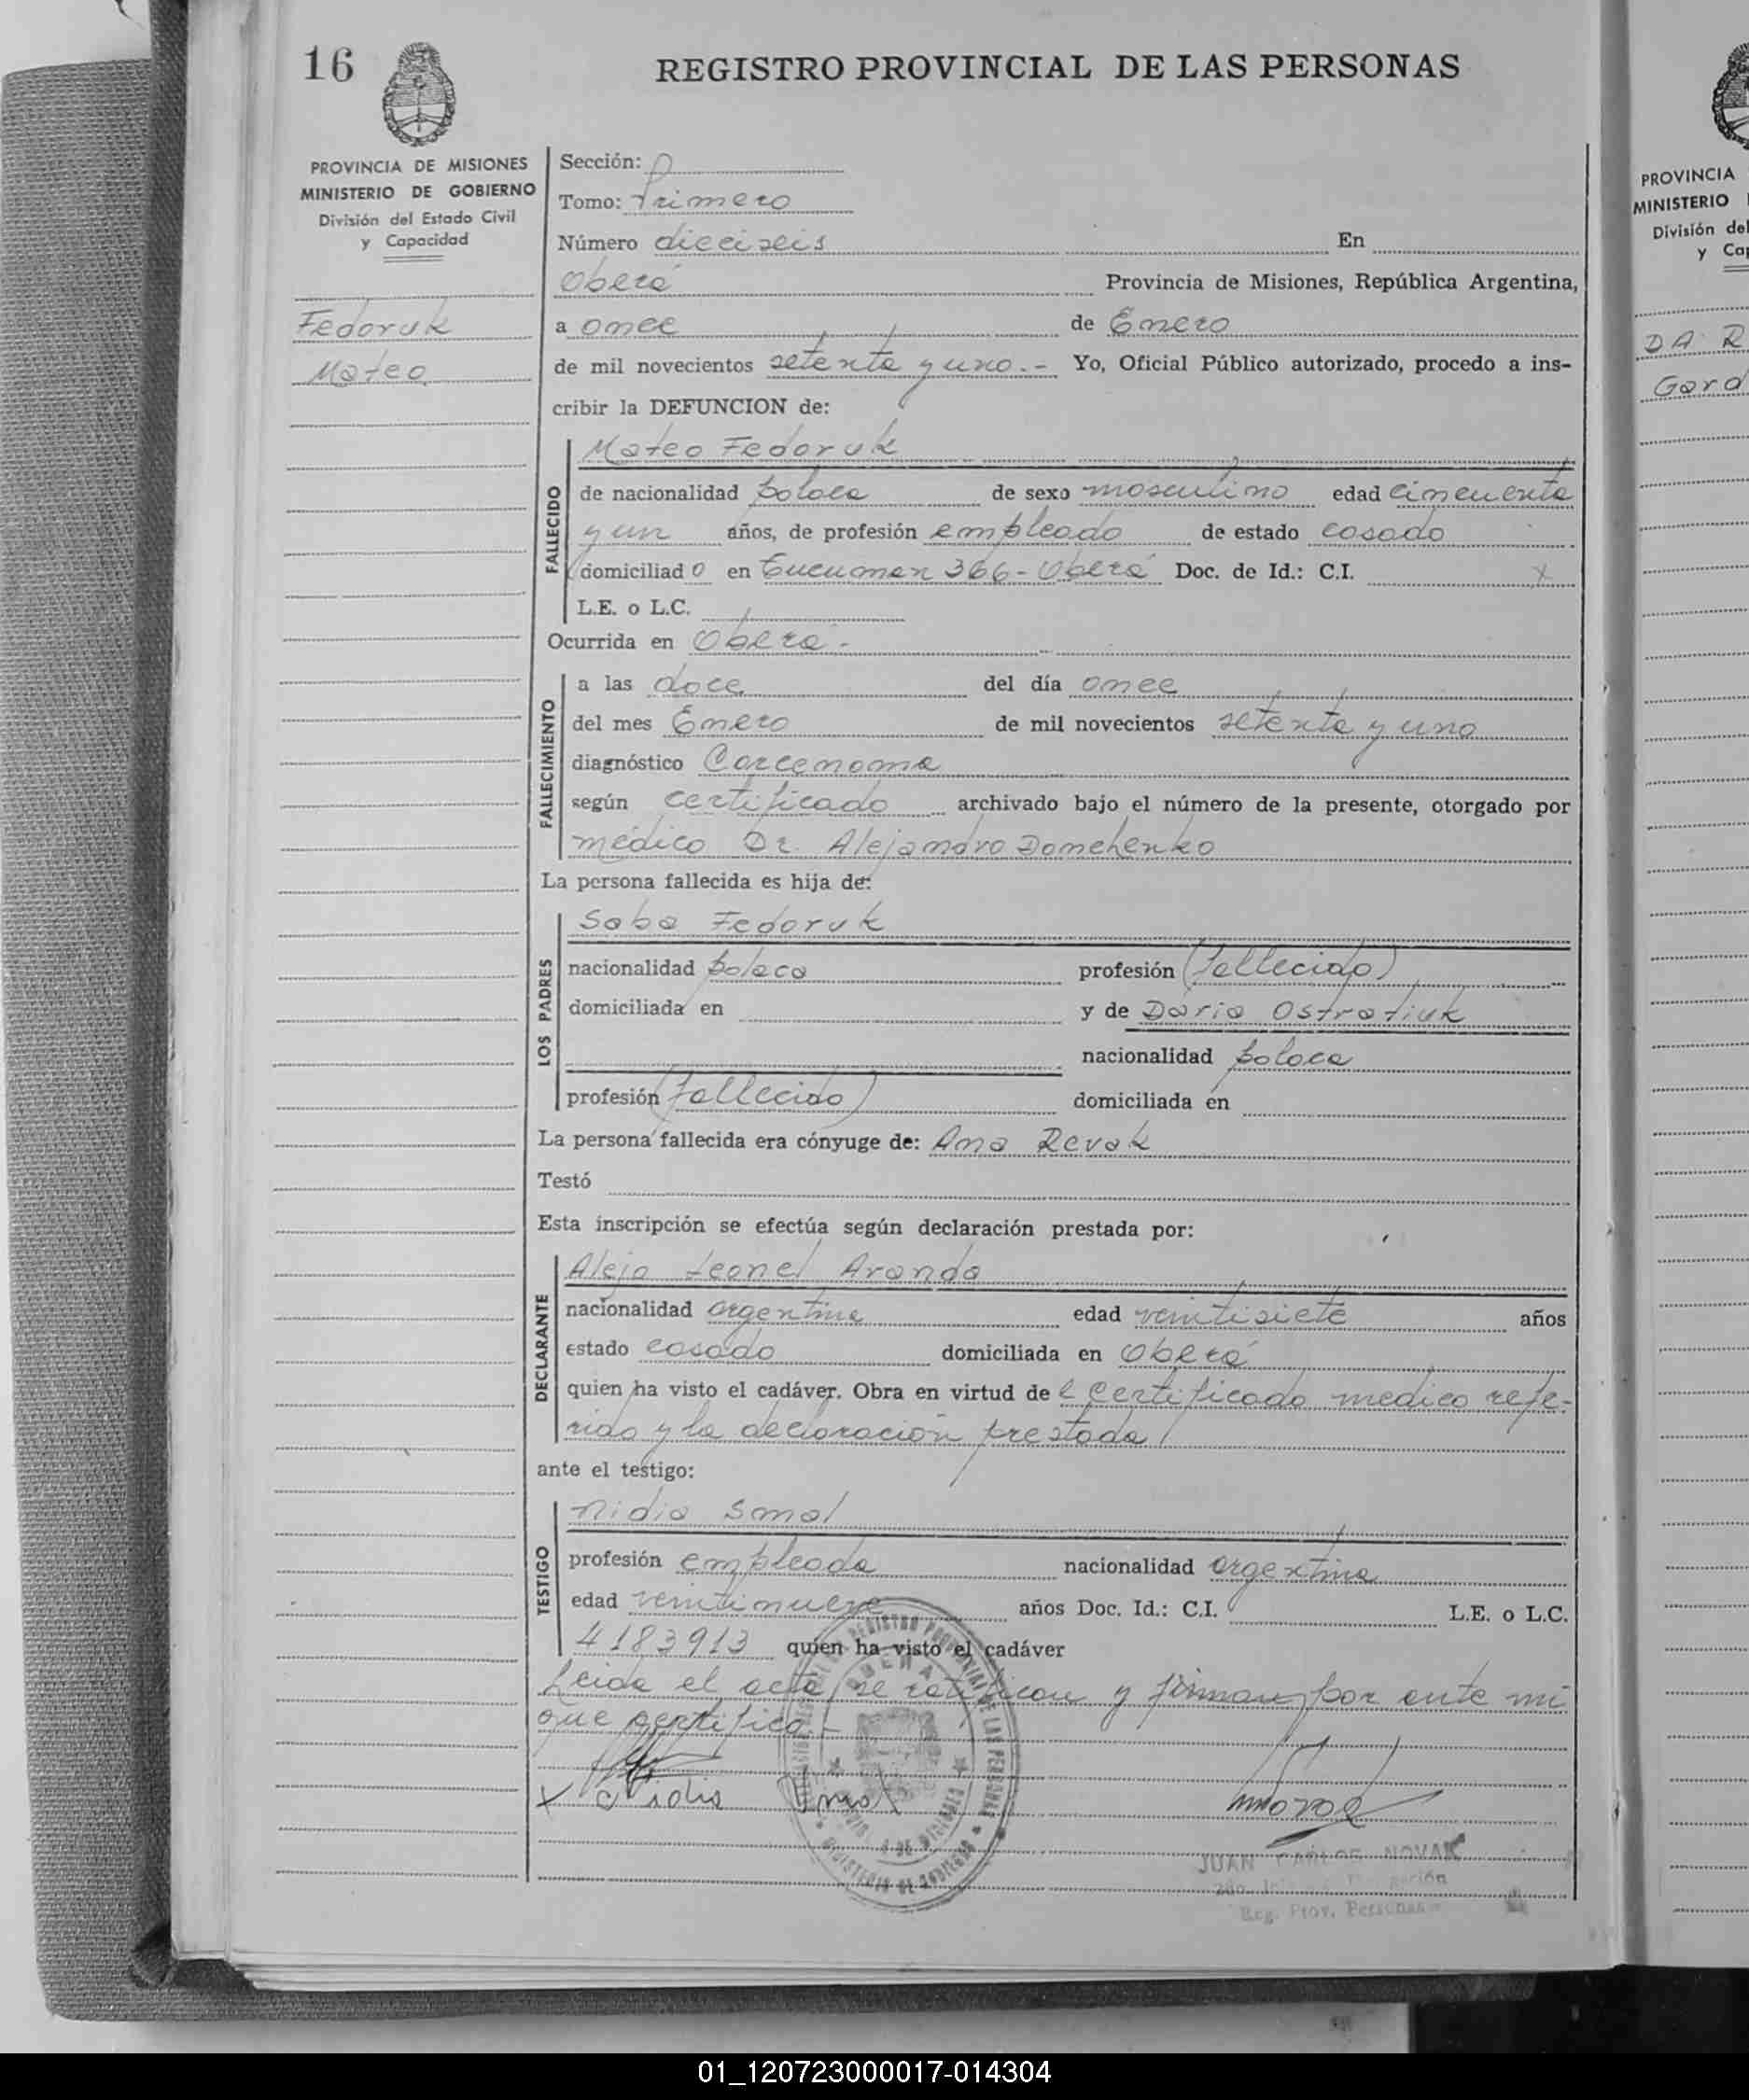 16
REGISTRO PROVINCIAL DE LAS PERSONAS
PROVINCIA DE MISIONES
MINISTERIO DE GOBIERNO
División del Estado Civil
y Capacidad
Fedoruk
Mateo
Sección: D
Tomo: Primero
Número dieciseis En
Oberá Provincia de Misiones, República Argentina,
a once de Enero
de mil novecientos setenta y uno.- Yo, Oficial Público autorizado, procedo a ins-
cribir la DEFUNCION de:
FALLECIDO
Mateo Fedoruk
de nacionalidad polaca de sexo masculino edad cincuenta
y un años, de profesión empleado de estado casado
domiciliado en Tucuman 366-Oberá Doc. de Id.: C.I. x
L.E. o L.C.
Ocurrida en Oberá-
FALLECIMIENTO
a las doce del día once
del mes Enero de mil novecientos setenta y uno
diagnóstico Carcenoma
según certificado archivado bajo el número de la presente, otorgado por
médico Dr. Alejandro Domchenko
La persona fallecida es hija de:
LOS PADRES
Saba Fedoruk
nacionalidad polaca profesión (fallecido)
domiciliada en y de Daria Ostratiuk
nacionalidad polaca
profesión (fallecido) domiciliada en
La persona fallecida era cónyuge de: Ana Revak
Testó
Esta inscripción se efectúa según declaración prestada por:
DECLARANTE
Alejo Leonel Aranda
nacionalidad argentina edad veintisiete años
estado casado domiciliada en Oberá
quien ha visto el cadáver. Obra en virtud del certificado medico refe-
rido y la declaración prestada
ante el testigo:
TESTIGO
Nidia Smal
profesión empleada nacionalidad argentina
edad veintinueve años Doc. Id.: C.I. L.E. o L.C.
4183913 quien ha visto el cadáver
Leida el acta, se ratifican y firman por ante mi
que certifico.-
x Nidia Smal
JUAN CARLOS NOVAK
Reg. Prov. Personas
OBERA
MINISTERIO DE GOBIERNO
PROVINCIA
MINISTERIO
División del
y Cap
DA R
Gard
01_120723000017-014304